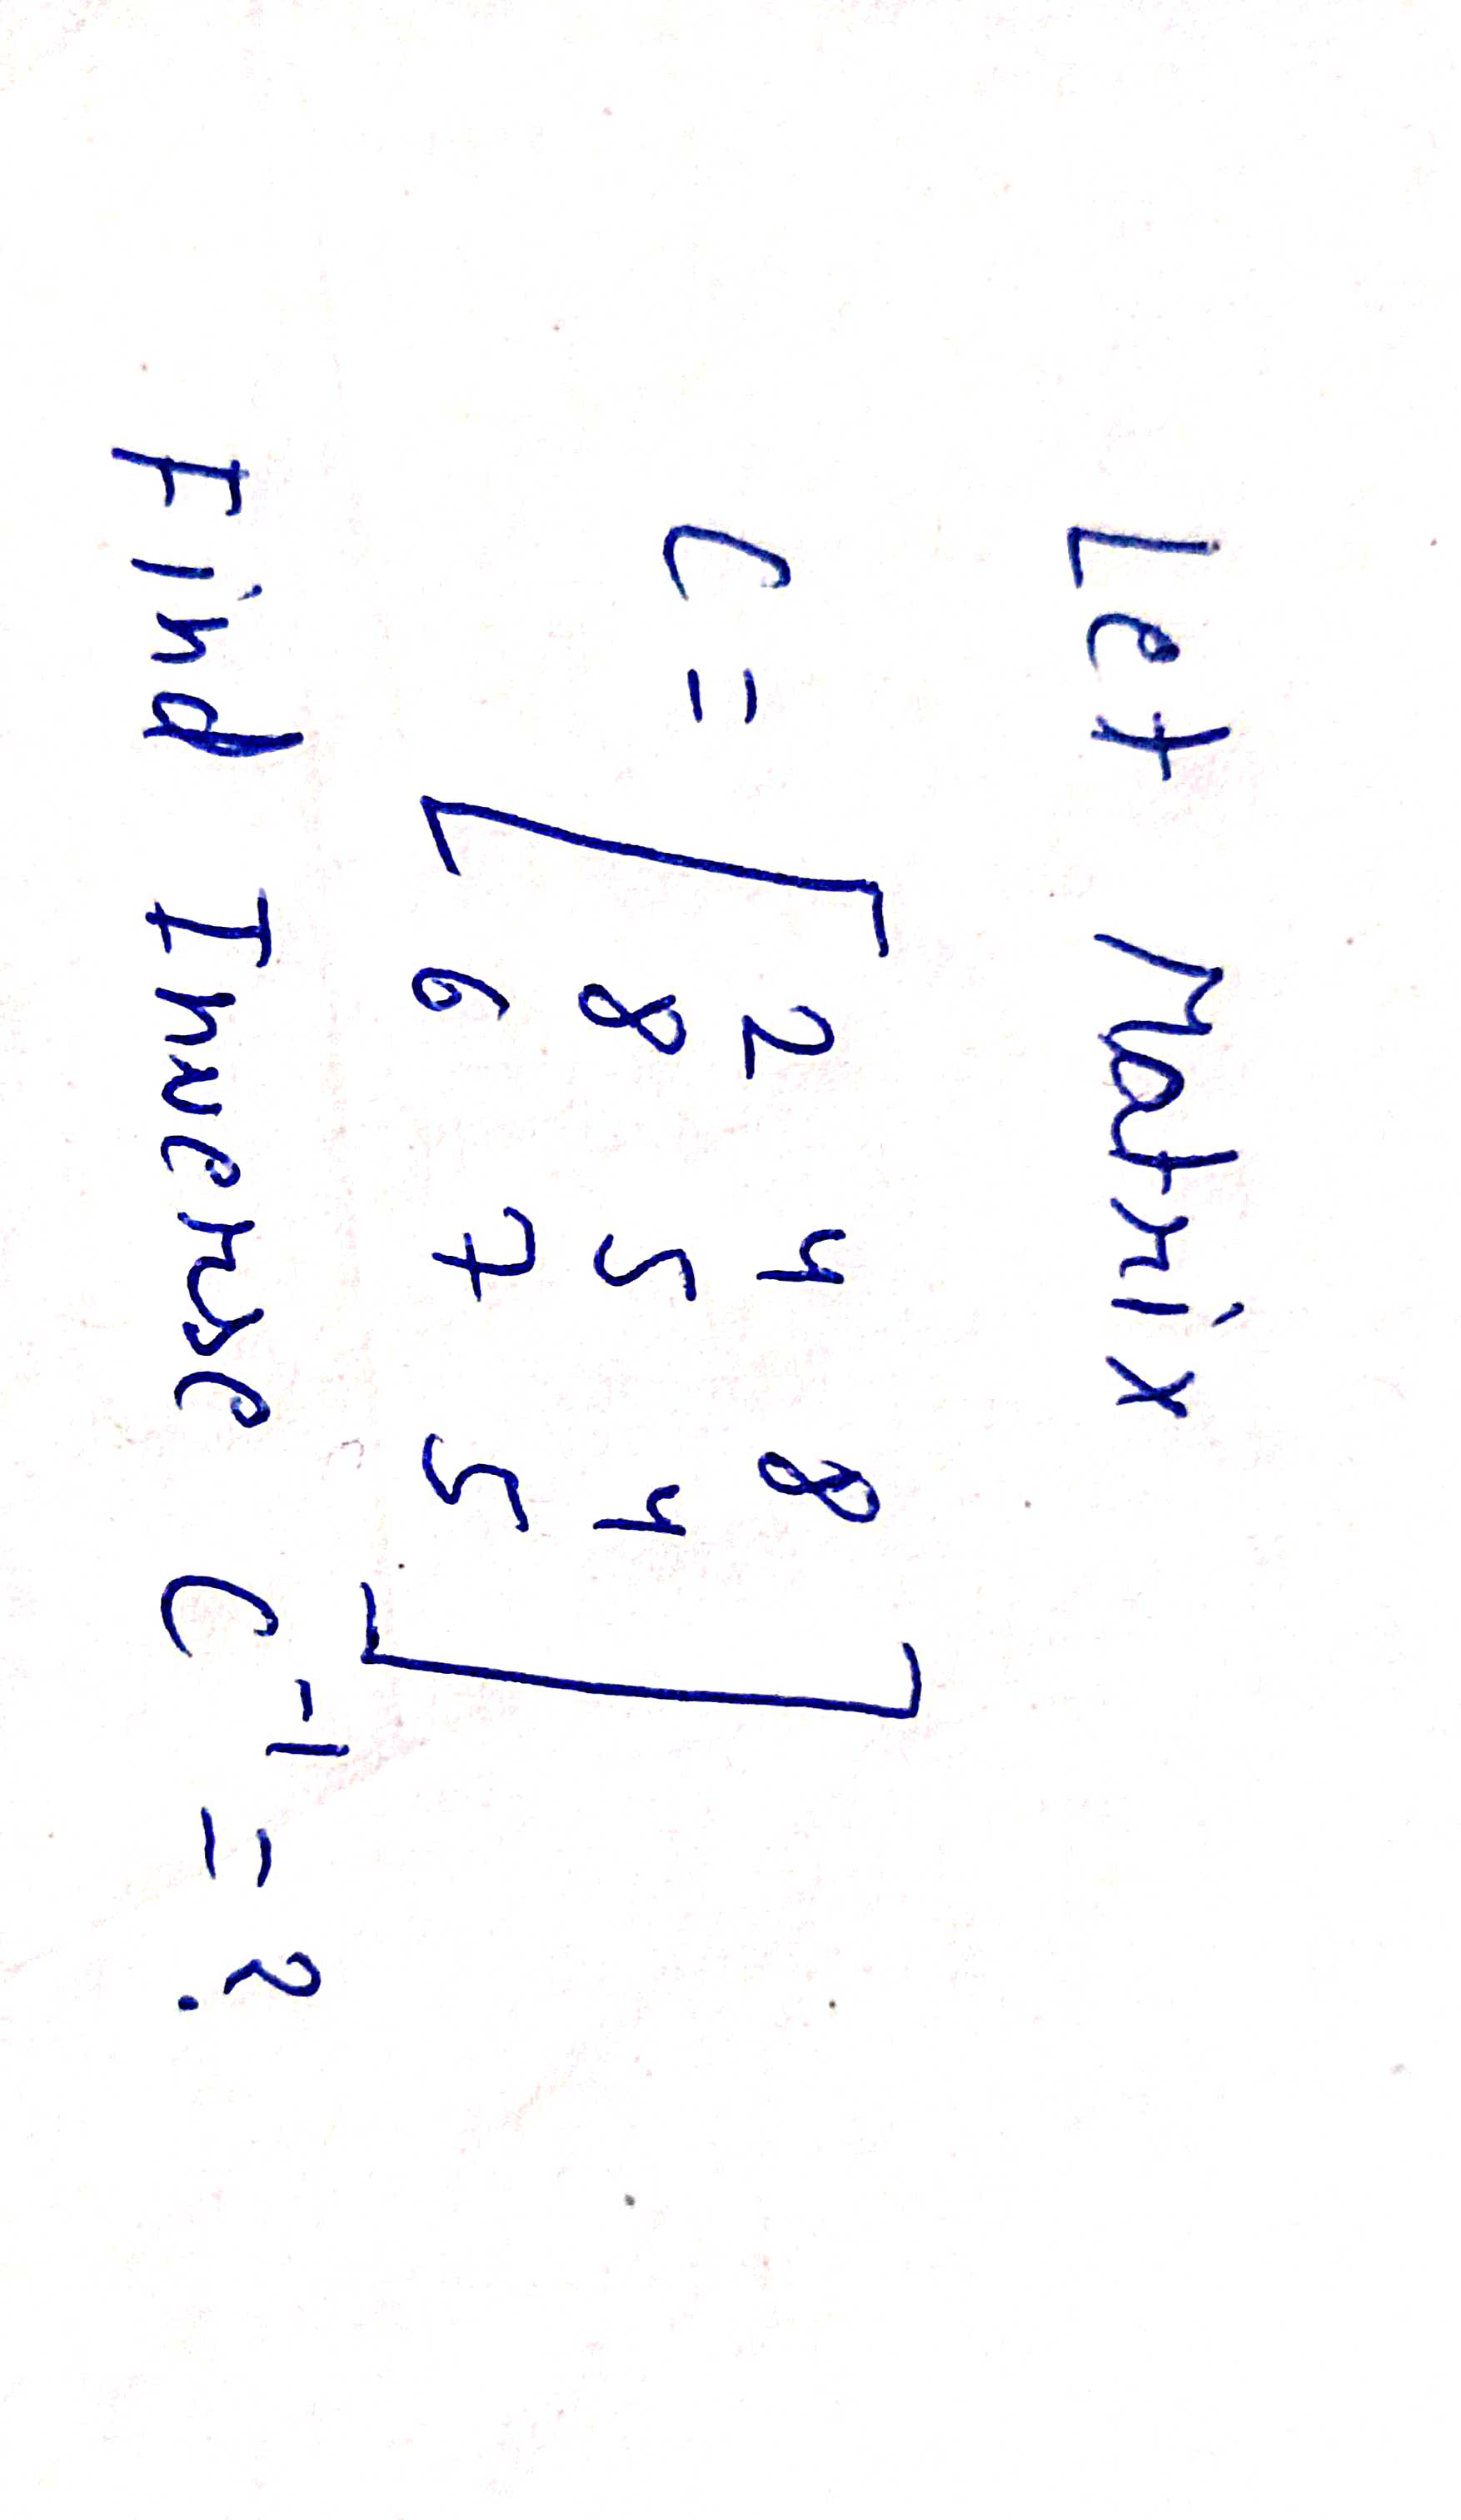 Let Matrix
C = [ 2 4 8
8 5 4
6 7 5 ]
Find Inverse C⁻¹ = ?